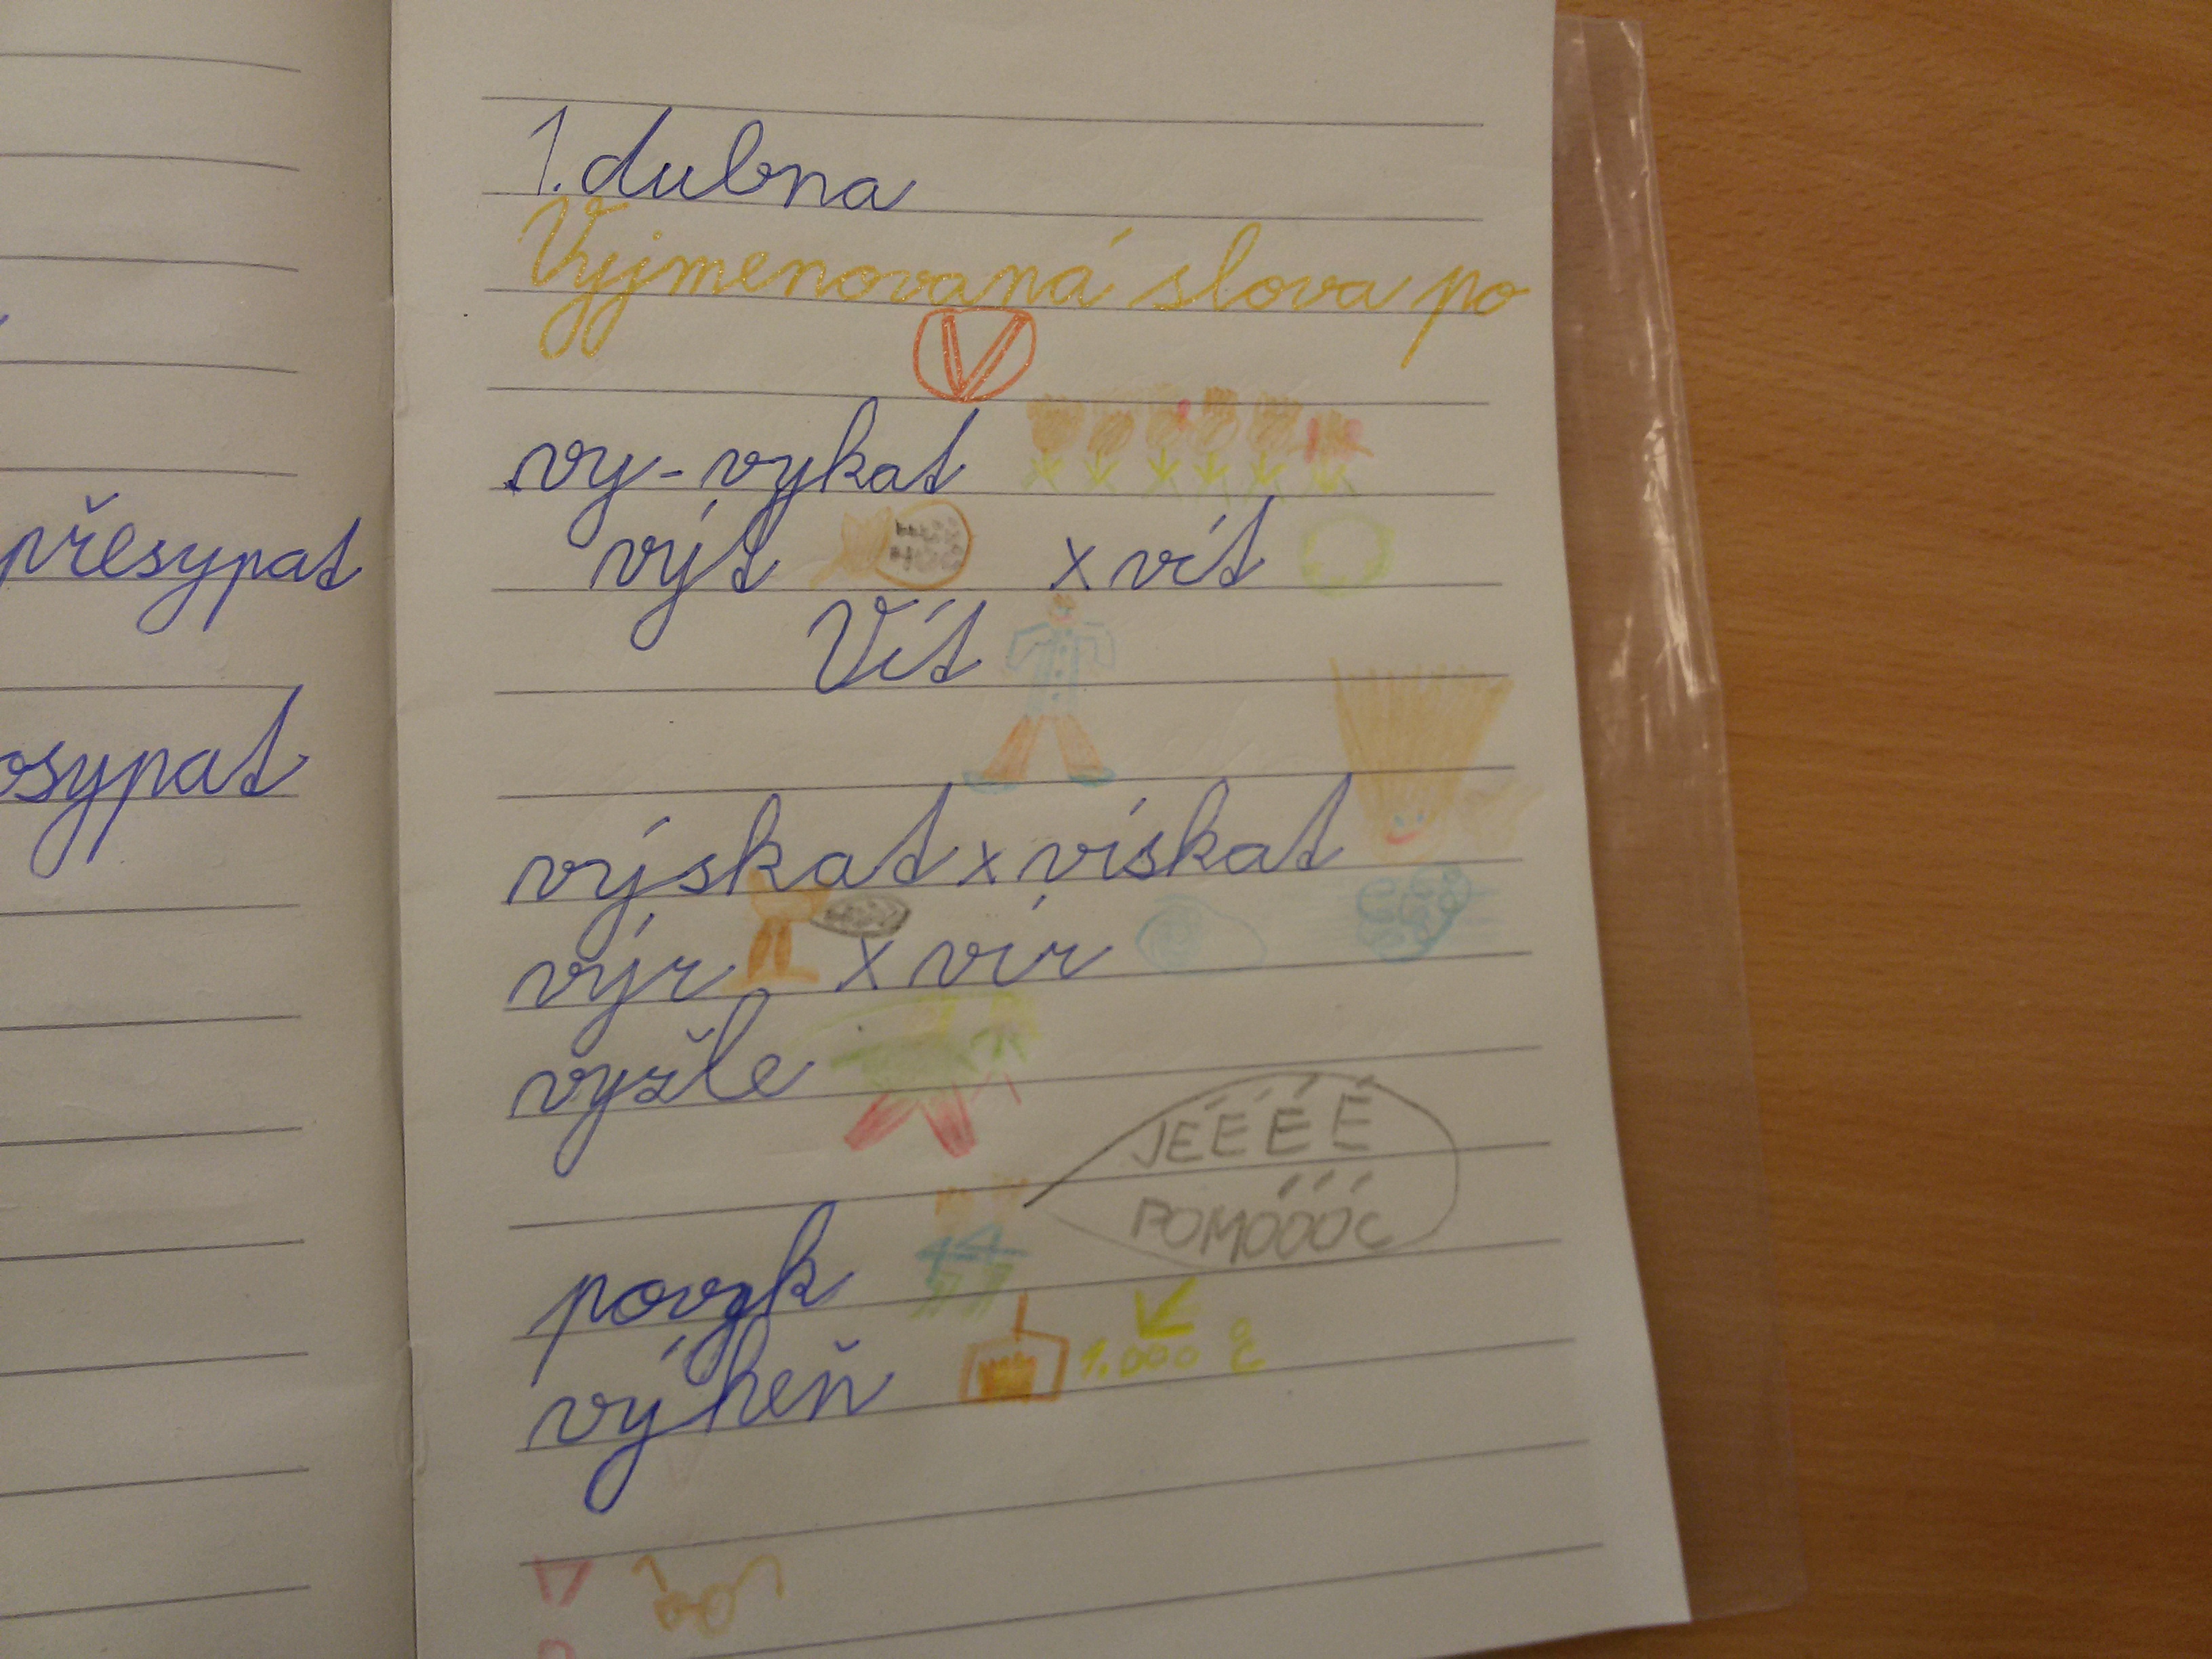 přesypat
osypat
1. dubna
Vyjmenovaná slova po
V
vy - vykat
výt x vít
Vít
výskat x vískat
výr x vír
vyžle
JÉÉÉÉ
POMÓÓÓC
povyk
výheň
1.000 °C